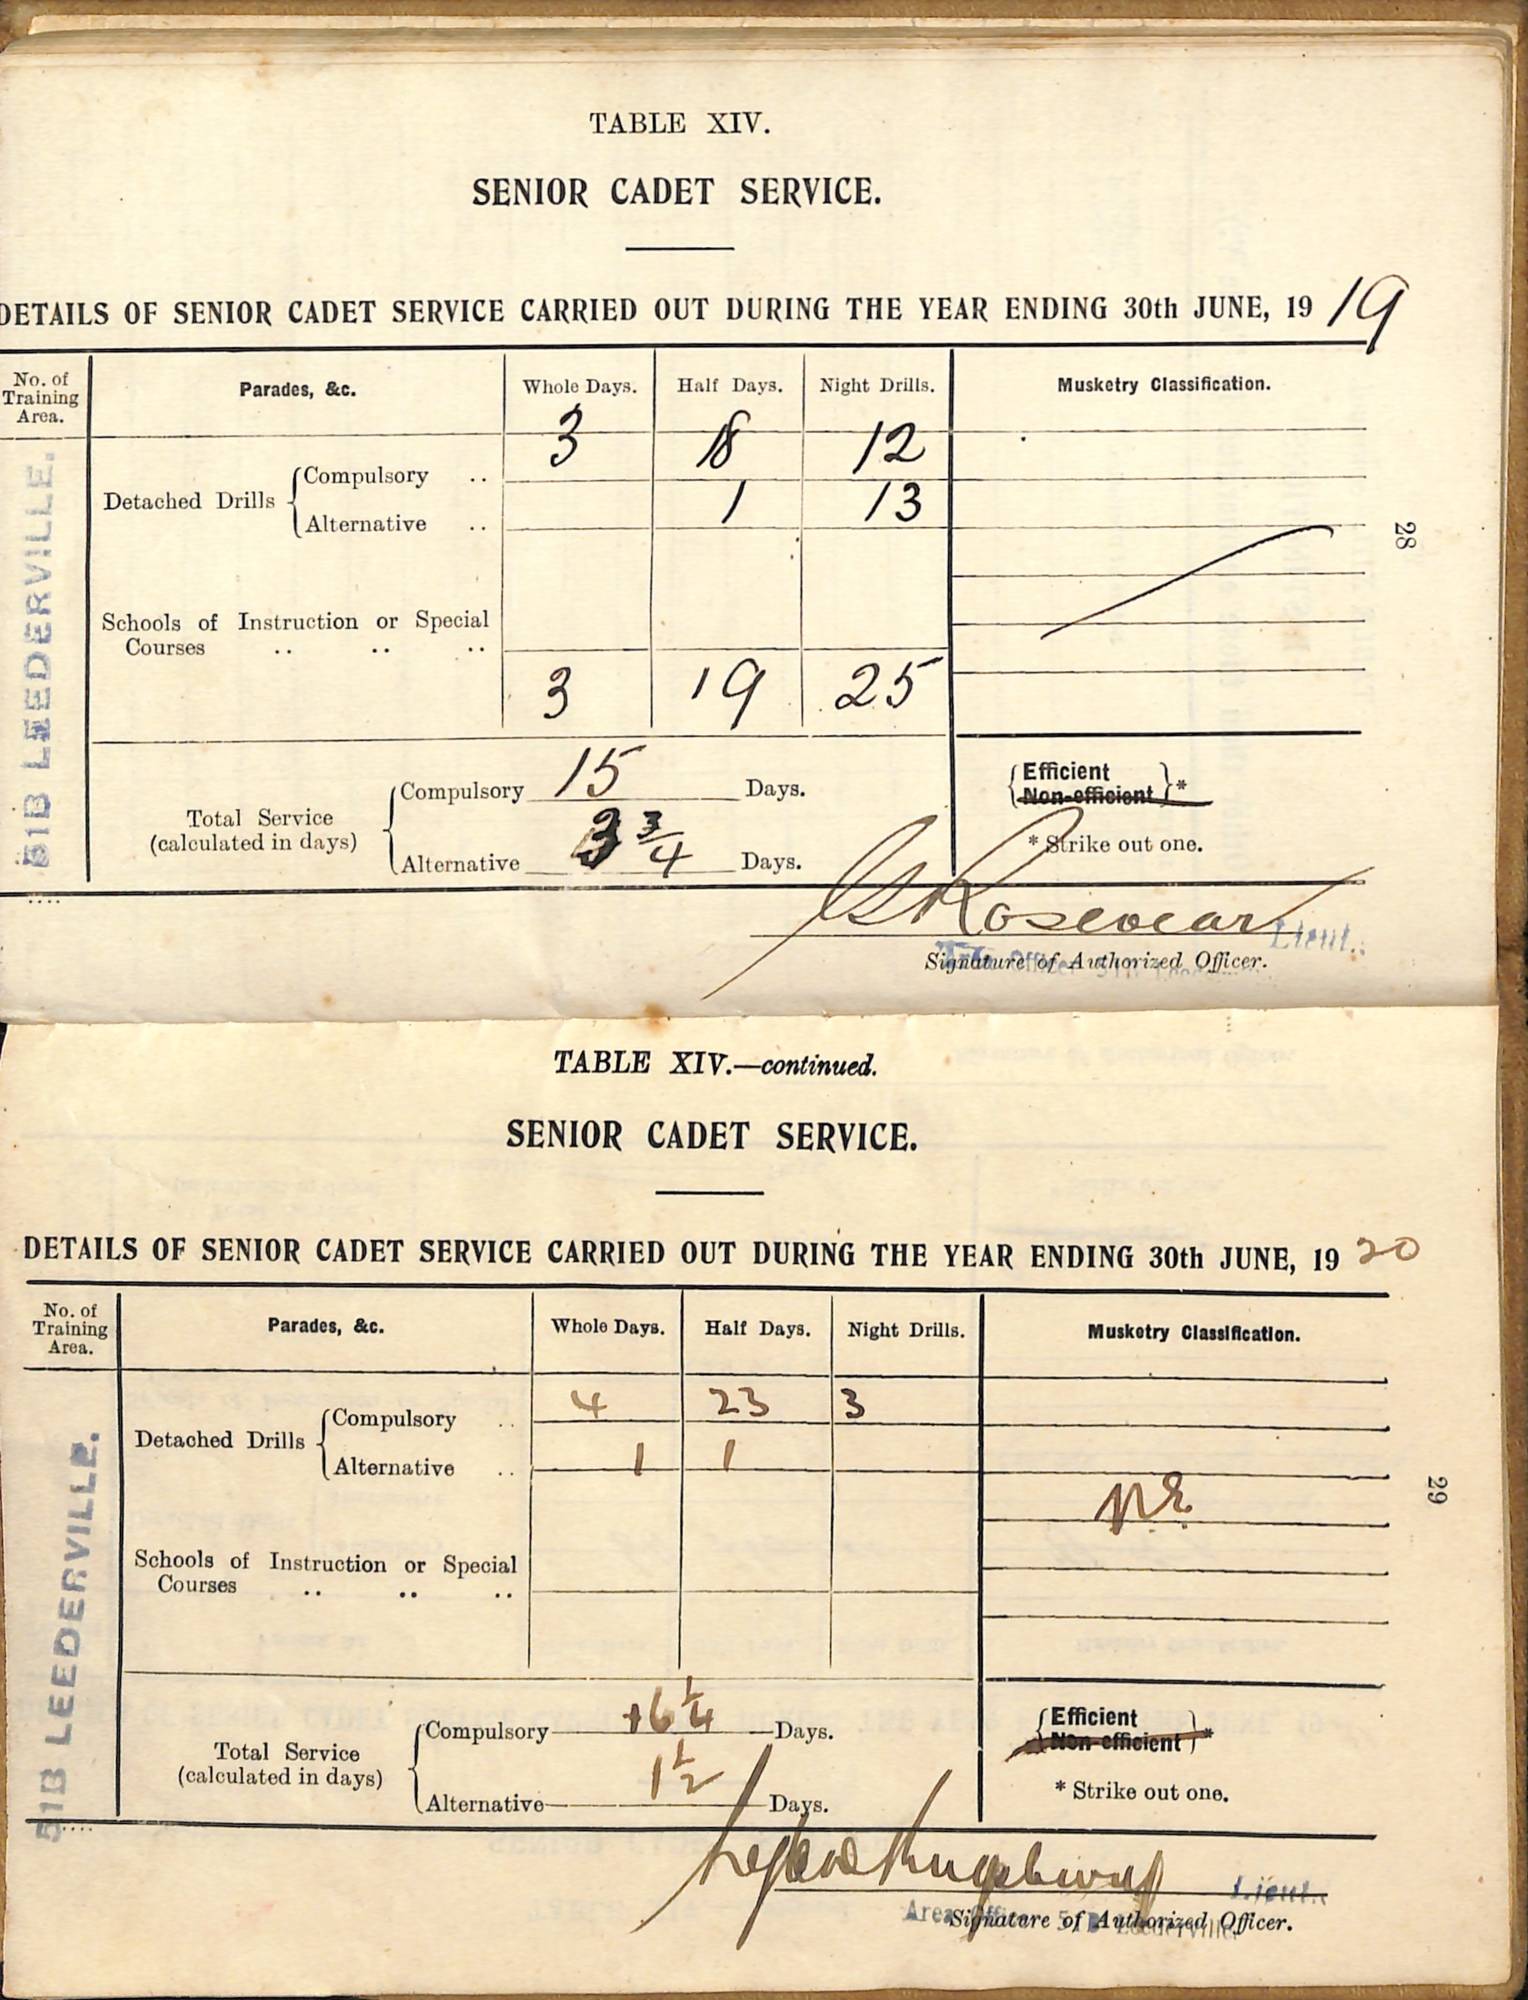 TABLE XIV.
SENIOR CADET SERVICE.
DETAILS OF SENIOR CADET SERVICE CARRIED OUT DURING THE YEAR ENDING 30th JUNE, 19 19
No. of Training Area. Parades, &c. Whole Days. Half Days. Night Drills. Musketry Classification.
51B LEEDERVILLE.
Detached Drills Compulsory .. 3 18 12
Alternative .. 1 13
28
Schools of Instruction or Special
Courses .. .. ..
3 19 25
Total Service (calculated in days) Compulsory 15 Days.
Alternative 3 3/4 Days.
Efficient
Non-efficient *
* Strike out one.
Rosevear Lieut.
Signature of Authorized Officer.
TABLE XIV.—continued.
SENIOR CADET SERVICE.
DETAILS OF SENIOR CADET SERVICE CARRIED OUT DURING THE YEAR ENDING 30th JUNE, 19 20
No. of Training Area. Parades, &c. Whole Days. Half Days. Night Drills. Musketry Classification.
51B LEEDERVILLE.
Detached Drills Compulsory .. 4 23 3
Alternative .. 1 1
29
Schools of Instruction or Special
Courses .. .. ..
Total Service (calculated in days) Compulsory 16 1/4 Days.
Alternative 1 1/2 Days.
Efficient
Non-efficient *
* Strike out one.
Lieut.
Area Officer 51B Leederville
Signature of Authorized Officer.